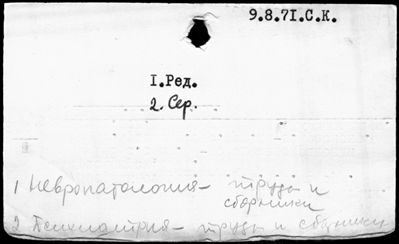 9.8.71.С.К.
I.Ред.
2. Сер.
1 Невропатология - труды и
сборники
2 Психиатрия - труды и сборники